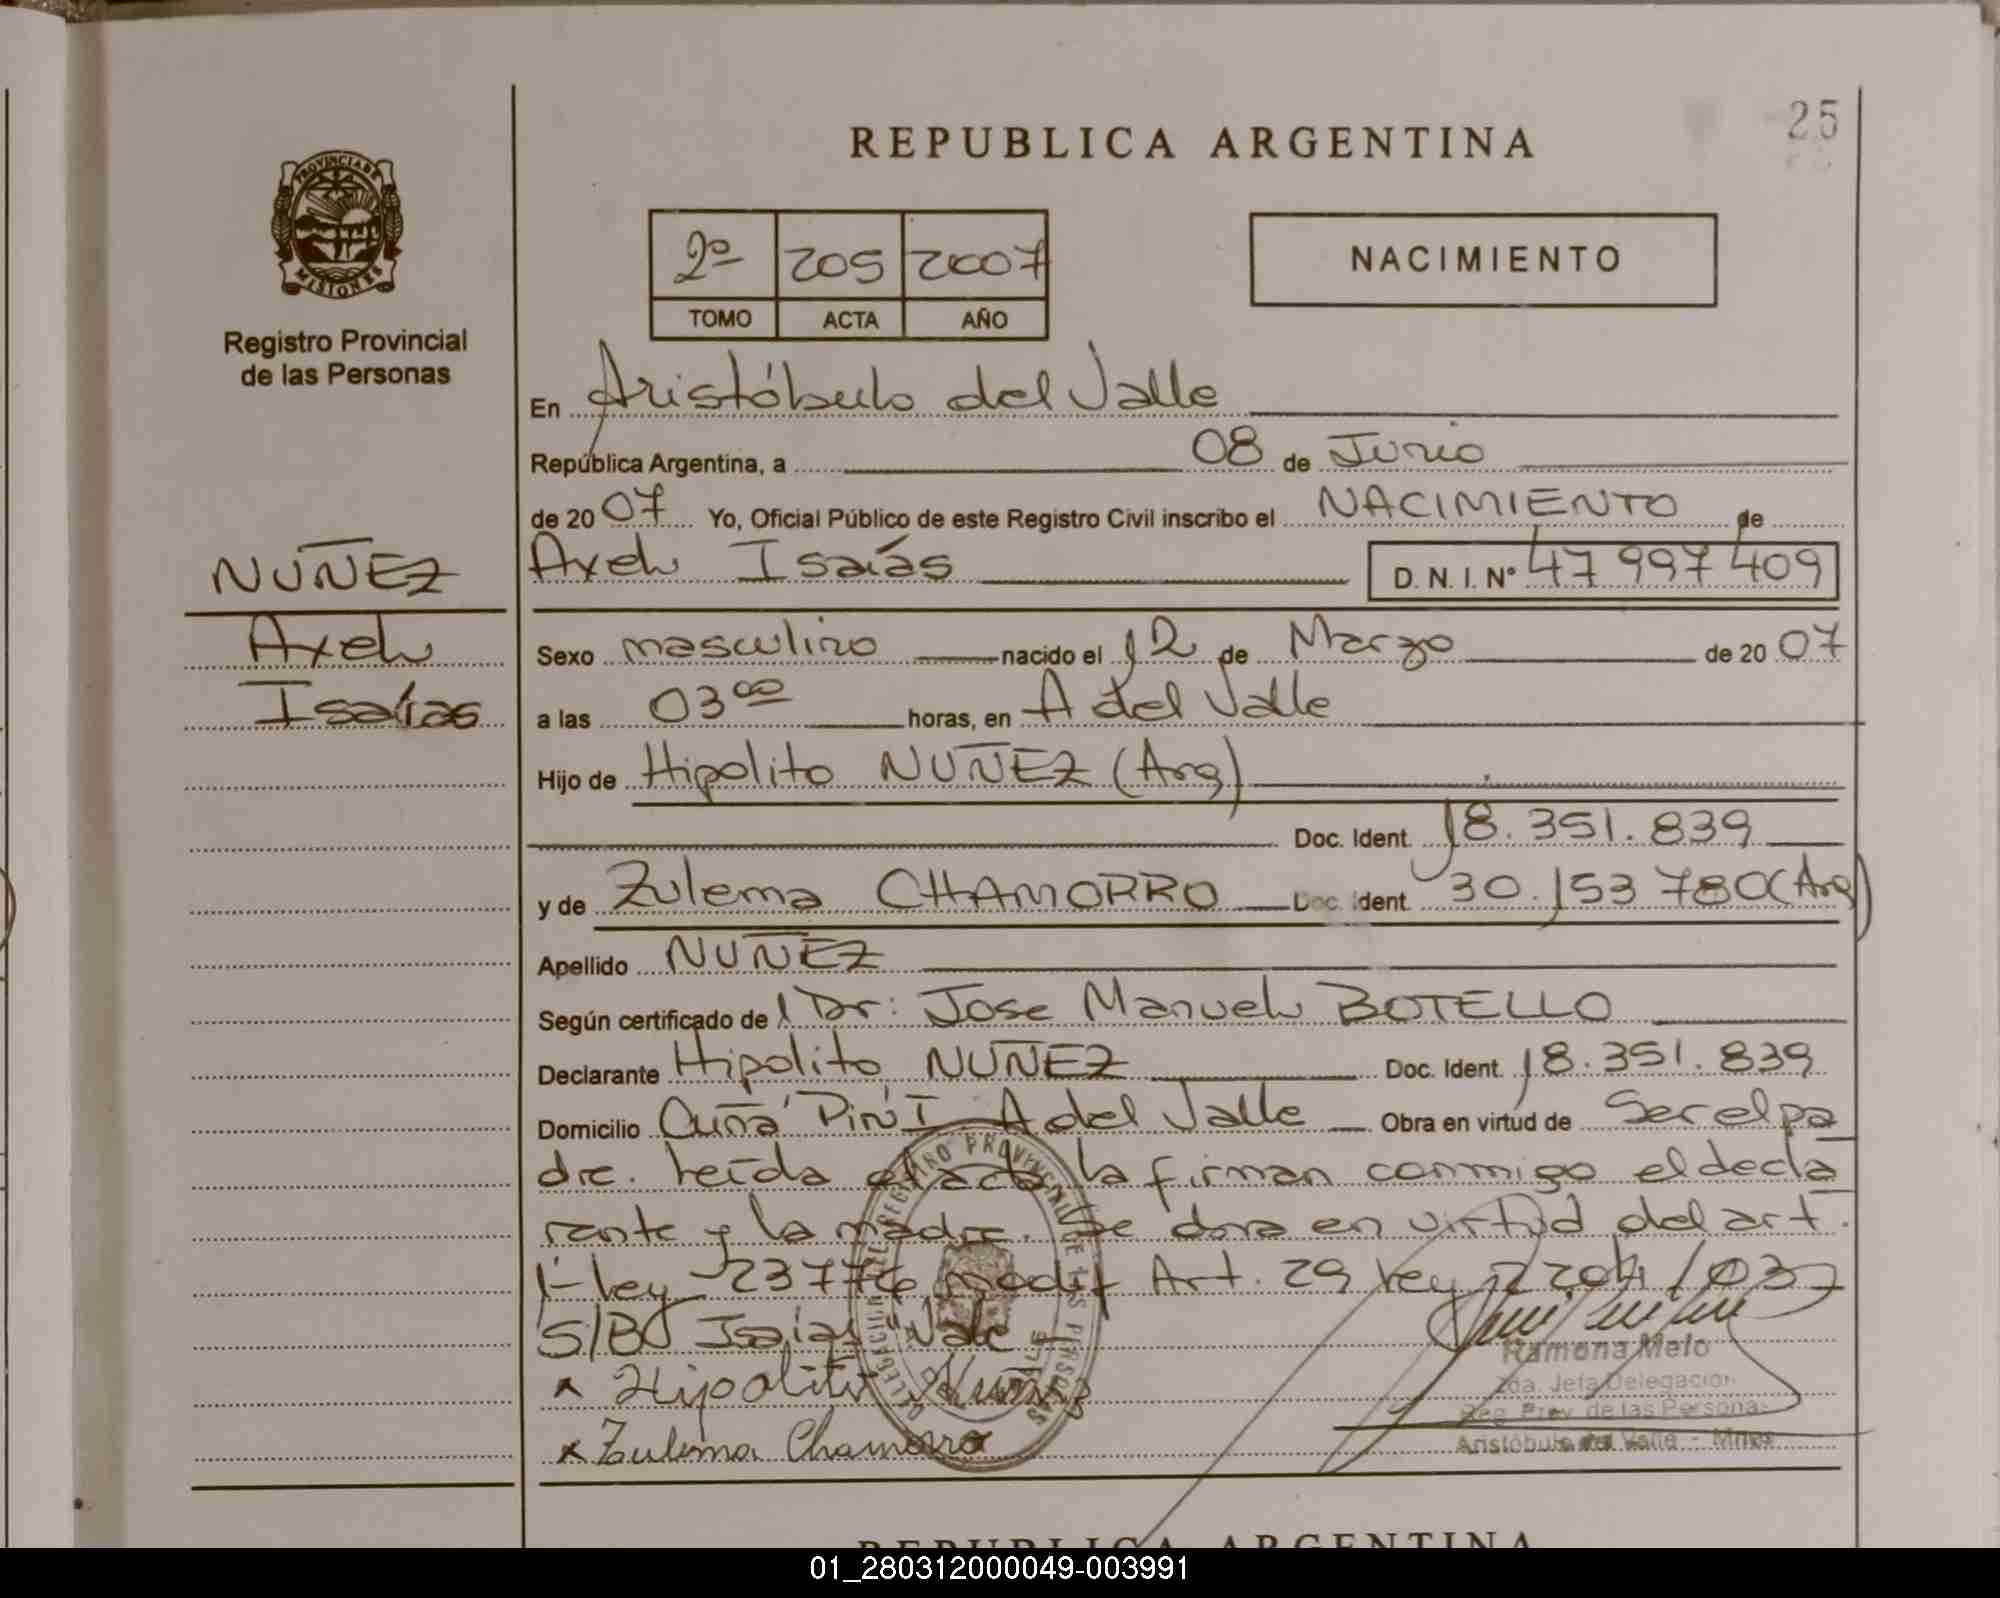 25
REPUBLICA ARGENTINA
PROVINCIA DE
MISIONES
Registro Provincial
de las Personas
2º 205 2007
TOMO ACTA AÑO
NACIMIENTO
En Aristóbulo del Valle
República Argentina, a 08 de Junio
de 2007 Yo, Oficial Público de este Registro Civil inscribo el NACIMIENTO de
NUÑEZ
Axel Isaías D. N. I. Nº 47 997 409
Axel
Isaías
Sexo masculino nacido el 12 de Marzo de 2007
a las 03 00 horas, en A del Valle
Hijo de Hipolito NUÑEZ (Arg)
Doc. Ident. 18.351.839
y de Zulema CHAMORRO Doc. Ident. 30.153 780 (Arg)
Apellido NUÑEZ
Según certificado de l Dr: Jose Manuel BOTELLO
Declarante Hipolito NUÑEZ Doc. Ident. 18.351.839
Domicilio Cuñá Pirú I A del Valle Obra en virtud de Ser el pa
dre. Leída el acta la firman conmigo el decla
rante y la madre. Se dona en virtud del art.
1- ley 23776 modif Art. 29 ley 2204/03
S/B Isaías Vale
x Hipolito Nuñez
x Zulema Chamorro
Ramona Melo
2da. Jefa Delegación
Reg. Prov. de las Personas
Aristóbulo del Valle - Mnes
REPUBLICA ARGENTINA
01_280312000049-003991